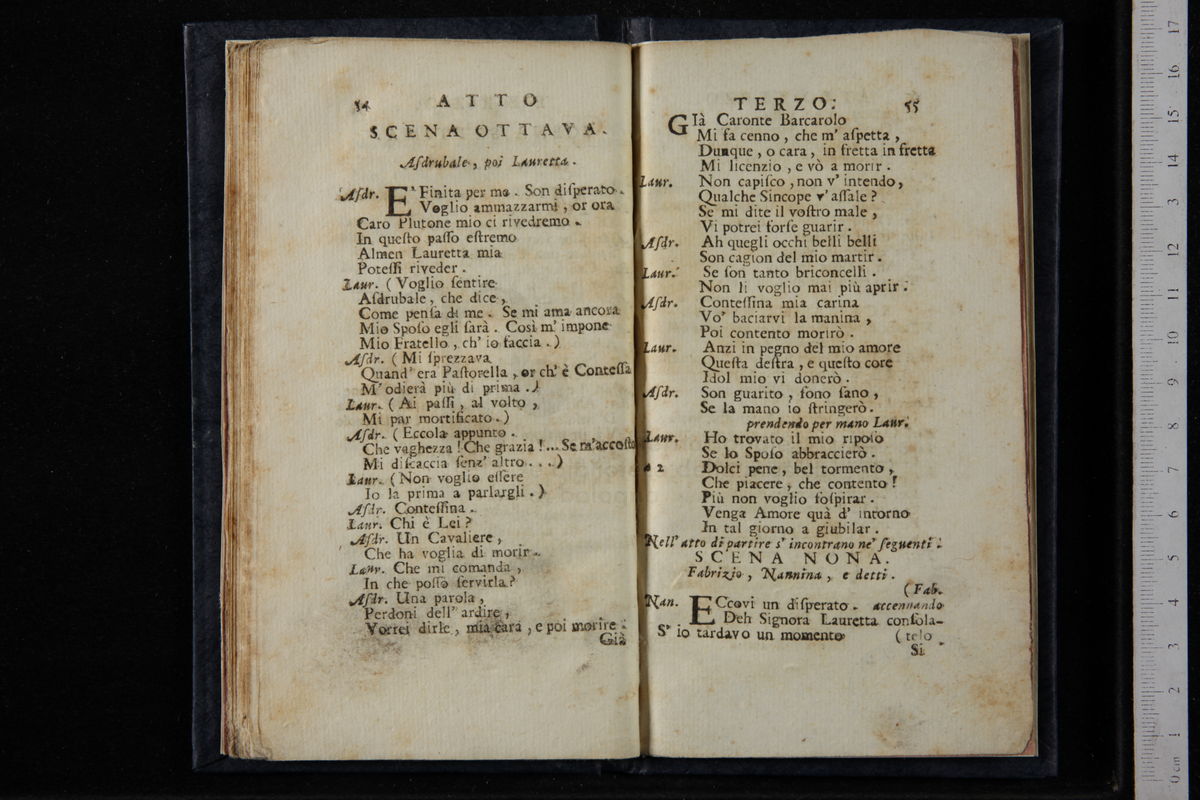 54 ATTO
SCENA OTTAVA.
Aſdrubale, poi Lauretta.
Aſdr. E' Finita per me. Son diſperato.
Voglio ammazzarmi, or ora
Caro Plutone mio ci rivedremo.
In queſto paſſo eſtremo
Almen Lauretta mia
Poteſſi riveder.
Laur. (Voglio ſentire
Aſdrubale, che dice,
Come penſa di me. Se mi ama ancora
Mio Spoſo egli ſarà. Così m' impone
Mio Fratello, ch' io faccia.)
Aſdr. (Mi ſprezzava
Quand' era Paſtorella, or ch' è Conteſſa
M' odierà più di prima.)
Laur. (Ai paſſi, al volto,
Mi par mortificato.)
Aſdr. (Eccola appunto.
Che vaghezza! Che grazia!... Se m'accoſto
Mi diſcaccia ſenz' altro....)
Laur. (Non voglio eſſere
Io la prima a parlargli.)
Aſdr. Conteſſina.
Laur. Chi è Lei?
Aſdr. Un Cavaliere,
Che ha voglia di morir.
Laur. Che mi comanda,
In che poſſo ſervirla?
Aſdr. Una parola,
Perdoni dell' ardire,
Vorrei dirle, mia cara, e poi morire.
Già
TERZO. 55
GIà Caronte Barcarolo
Mi fa cenno, che m' aſpetta,
Dunque, o cara, in fretta in fretta
Mi licenzio, e vò a morir.
Laur. Non capiſco, non v' intendo,
Qualche Sincope v' aſſale?
Se mi dite il voſtro male,
Vi potrei forſe guarir.
Aſdr. Ah quegli occhi belli belli
Son cagion del mio martir.
Laur. Se ſon tanto briconcelli.
Non li voglio mai più aprir.
Aſdr. Conteſſina mia carina
Vo' baciarvi la manina,
Poi contento morirò.
Laur. Anzi in pegno del mio amore
Queſta deſtra, e queſto core
Idol mio vi donerò.
Aſdr. Son guarito, ſono ſano,
Se la mano io ſtringerò.
prendendo per mano Laur.
Laur. Ho trovato il mio ripoſo
Se lo Spoſo abbraccierò.
a 2 Dolci pene, bel tormento,
Che piacere, che contento!
Più non voglio ſoſpirar.
Venga Amore quà d' intorno
In tal giorno a giubilar.
Nell' atto di partire s' incontrano ne' ſeguenti.
SCENA NONA.
Fabrizio, Nannina, e detti.
(Fab.
Nan. ECcovi un diſperato. accennando
Deh Signora Lauretta conſola-
S' io tardavo un momento (telo
Si